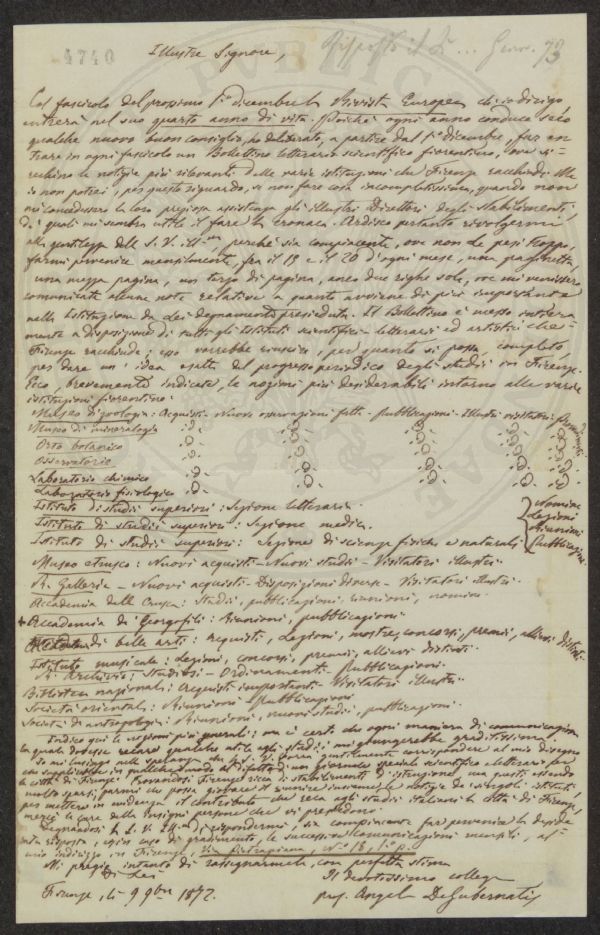 4740
Illustre Signore,
Risposto il 2 ... Genn. 73
Col fascicolo del prossimo 1° dicembre la Rivista Europea, ch'io dirigo,
entrerà nel suo quarto anno di vita. Poichè ogni anno conduce seco
qualche nuovo buon consiglio, ho deliberato, a partire dal 1° dicembre, far en-
trare in ogni fascicolo un Bollettino letterario scientifico fiorentino, ove si
rechino le notizie più rilevanti delle varie istituzioni che Firenze racchiude. Ma
io non potrei, per questo riguardo, se non fare cosa incompletissima, quando non
mi concedessero la loro preziosa assistenza gli illustri Direttori degli Stabilimenti,
di quali mi sembra utile il fare la cronaca. Ardisco pertanto rivolgermi
alla gentilezza della S. V. Ill.ma, perchè sia compiacente, ove non le pesi troppo,
farmi pervenire mensilmente, fra il 15 e il 20 d'ogni mese, una paginetta,
una mezza pagina, un terzo di pagina, anco due righe sole, ove mi venissero
comunicate alcune note relative a quanto avviene di più importante
nella Istituzione da Lei degnamente presieduta. Il Bollettino è messo intiera-
mente a disposizione di tutti gli Istituti scientifici letterari ed artistici che
Firenze racchiude; esso vorrebbe riuscire, per quanto si possa, completo,
per dare un' idea esatta del progresso periodico degli studii in Firenze.
Ecco, brevemente indicate, le nozioni più desiderabili intorno alle varie
istituzioni fiorentine:
Museo di zoologia: Acquisti - Nuove osservazioni fatte - Pubblicazioni - Illustri visitatori
Museo di mineralogia id. id. id. id.
Orto botanico id. id. id. id.
Osservatorio id. id. id. id.
Laboratorio chimico id. id. id. id.
Laboratorio fisiologico id. id. id. id.
Istituto di studii superiori: Sezione letteraria
Istituto di studii superiori: Sezione medica
Istituto di studii superiori: Sezione di scienze fisiche e naturali
Nomine
Lezioni
Riunioni
Pubblicazioni
Museo etrusco: Nuovi acquisti - Nuovi studii - Visitatori illustri
R. Gallerie - Nuovi acquisti - Disposizioni diverse - Visitatori illustri.
Accademia della Crusca: Studii, pubblicazioni, riunioni, nomine
+ Accademia de' Georgofili: Riunioni, pubblicazioni
di belle arti: acquisti, lezioni, mostre, concorsi, premii, allievi distinti
Istituto musicale: Lezioni, concorsi, premii, allievi distinti.
R. Archivio: Studiosi - Ordinamenti - Pubblicazioni.
Biblioteca nazionale: Acquisti importanti - Visitatori illustri
Società orientale: Riunioni - Pubblicazioni
Società di antropologia: Riunioni, nuovi studii, pubblicazioni.
Indico qui le nozioni più generali: ma è certo che ogni maniera di comunicazione
la quale dovesse recare qualche utile agli studii, mi giungerebbe graditissima.
Io mi lusingo nella speranza che la S. V. vorrà gentilmente corrispondere al mio disegno
che supplirebbe in qualche modo al difetto di un giornale speciale scientifico e letterario per
la città di Firenze. Trovandosi Firenze ricca di stabilimenti d'istruzione, ma questi essendo
molto sparsi, parmi che possa giovare il riunire insieme le notizie de' singoli istituti,
per mettere in evidenza il contributo che reca agli studii italiani la città di Firenze,
mercè le cure delle insigni persone che vi presiedono.
Degnandosi la S. V. Ill.ma di rispondermi, sia compiacente far pervenire la deside-
rata risposta, e, in caso di gradimento, le successive comunicazioni mensili, al
mio indirizzo in Firenze, via Pietrapiana, N.° 18, 1° p.°
Mi pregio intanto di rassegnarmele, con perfetta stima
Di Lei
Firenze, li 9 9bre 1872.
Il devotissimo collega
prof. Angelo DeGubernatis